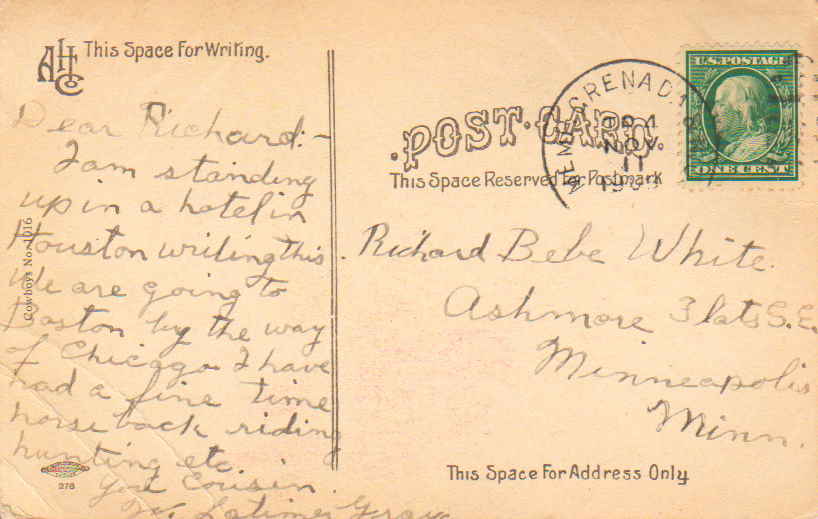 AHCo
This Space For Writing.
Dear Richard:-
I am standing
up in a hotel in
Houston writing this
We are going to
Boston by the way
of Chicago I have
had a fine time
horse back riding
hunting etc
Cousin
W. Latimer Gray
Cowboys No. 1016
278
POST CARD.
This Space Reserved for Postmark
MEM. GRENADA
NOV
11
U.S. POSTAGE
ONE CENT
Richard Bebe White.
Ashmore Flats S.E.
Minneapolis
Minn.
This Space For Address Only